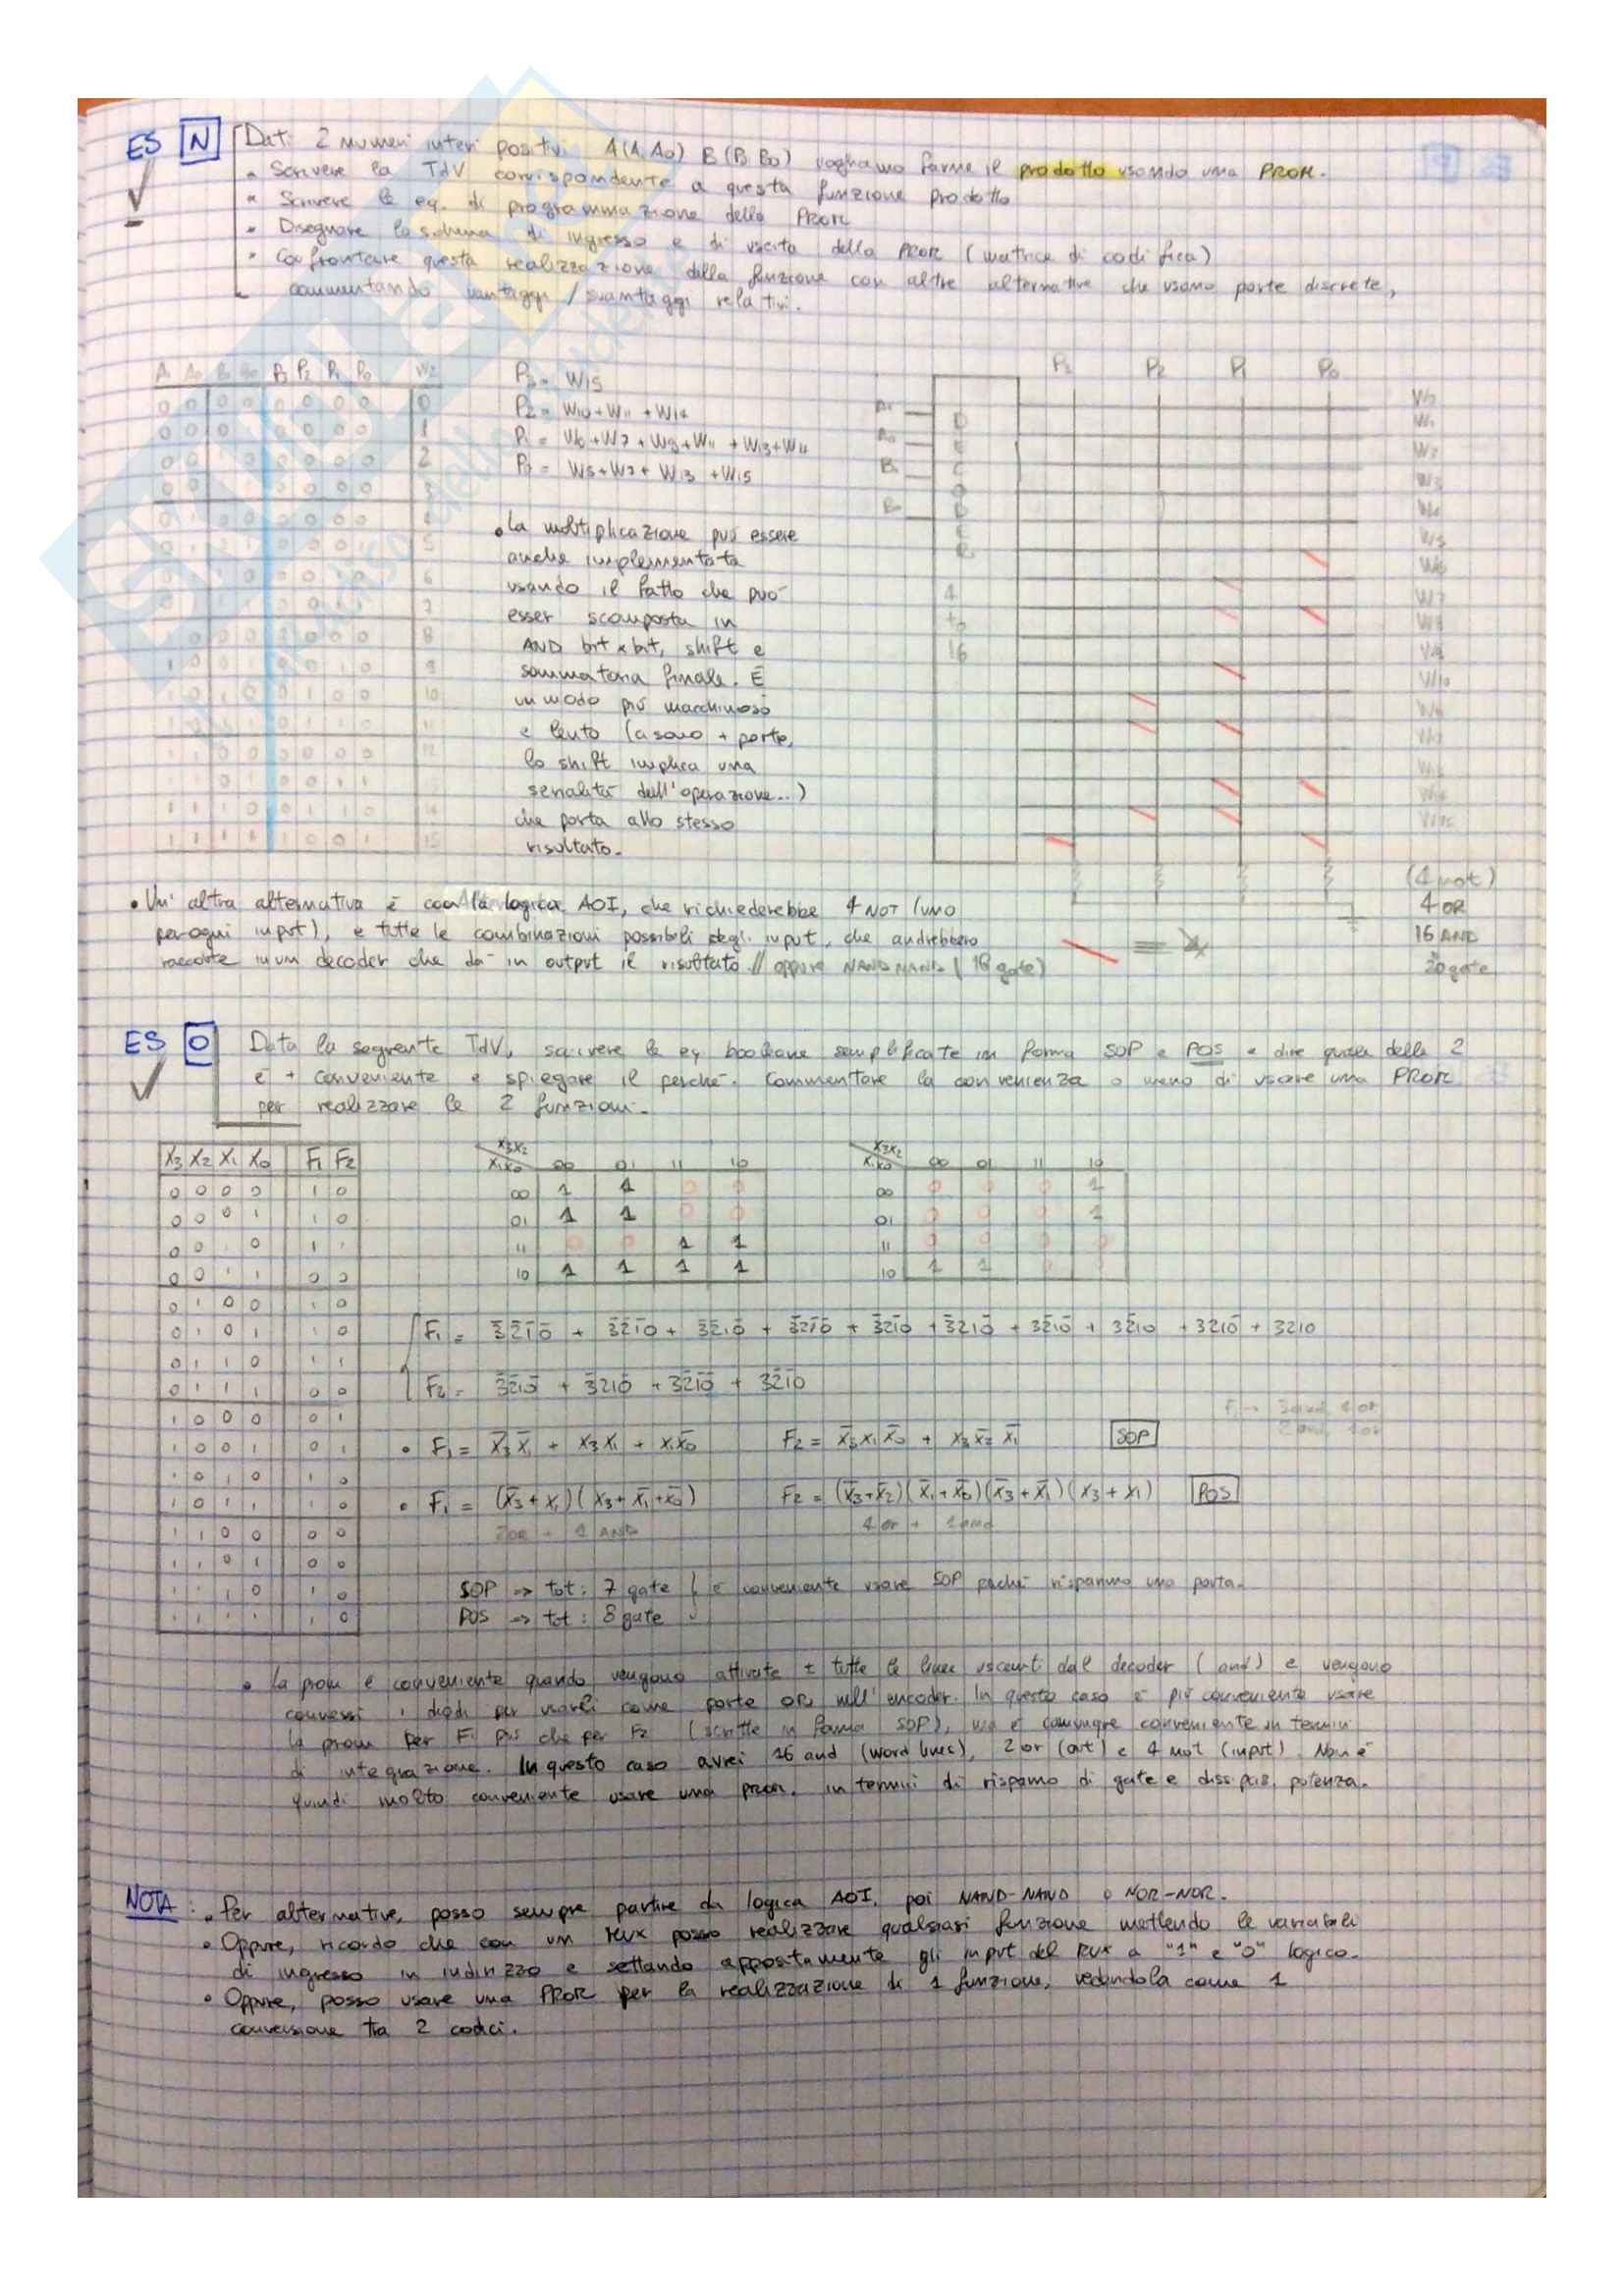 ES N Dati 2 numeri interi positivi A(A₁A₀) B(B₁B₀) vogliamo farne il prodotto usando una PROM.
• Scrivere la TdV corrispondente a questa funzione prodotto
• Scrivere le eq. di programmazione della PROM
• Disegnare lo schema di ingresso e di uscita della PROM (matrice di codifica)
• Confrontare questa realizzazione della funzione con altre alternative che usano porte discrete,
commentando vantaggi / svantaggi relativi.
P₃ = W₁₅
P₂ = W₁₀ + W₁₁ + W₁₄
P₁ = W₆ + W₇ + W₉ + W₁₁ + W₁₃ + W₁₄
W₅ + W₇ + W₁₃ + W₁₅
P₃ P₂ P₁ P₀
DECODER
4
to
16
• La moltiplicazione può essere
anche implementata
usando il fatto che può
esser scomposta in
AND bit x bit, shift e
sommatoria finale. È
un modo più macchinoso
e lento (ci sono + porte,
lo shift implica una
serialità dell'operazione...)
che porta allo stesso
risultato.
• Un'altra alternativa è con la logica AOI, che richiederebbe 4 NOT (uno
per ogni input), e tutte le combinazioni possibili degli input, che andrebbero
raccolte in un decoder che dà in output il risultato // oppure NAND NAND (18 gate)
(4 not)
4 OR
16 AND
20 gate
ES O Data la seguente TdV, scrivere le eq booleane semplificate in forma SOP e POS e dire quale delle 2
è + conveniente e spiegare il perché. Commentare la convenienza o meno di usare una PROM
per realizzare le 2 funzioni.
X₃ X₂ X₁ X₀ F₁ F₂
0 0 0 0 1 0
0 0 0 1 1 0
0 0 1 0 1 1
0 0 1 1 0 0
0 1 0 0 1 0
0 1 0 1 1 0
0 1 1 0 1 1
0 1 1 1 0 0
1 0 0 0 0 1
1 0 0 1 0 1
1 0 1 0 1 0
1 0 1 1 1 0
1 1 0 0 0 0
1 1 0 1 0 0
1 1 1 0 1 0
1 1 1 1 1 0
X₃X₂
X₁X₀ 00 01 11 10
00 1 1 0 0
01 1 1 0 0
11 0 0 1 1
10 1 1 1 1
X₃X₂
X₁X₀ 00 01 11 10
00 0 0 0 1
01 0 0 0 1
11 0 0 0 0
10 1 1 0 0
F₁ = 3̄2̄1̄0̄ + 3̄2̄1̄0 + 3̄2̄10̄ + 3̄21̄0̄ + 3̄21̄0 + 3̄210̄ + 32̄10̄ + 32̄10 + 3210̄ + 3210
F₂ = 3̄2̄10̄ + 3̄210̄ + 32̄1̄0̄ + 32̄1̄0
• F₁ = X̄₃X̄₁ + X₃X₁ + X₁X̄₀ F₂ = X̄₃X₁X̄₀ + X₃X̄₂X̄₁ SOP
F₁ → 3 and, 1 or
2 and, 1 or
• F₁ = (X̄₃+X₁)(X₃+X̄₁+X̄₀) F₂ = (X̄₃+X̄₂)(X̄₁+X̄₀)(X̄₃+X̄₁)(X₃+X₁) POS
2 OR + 1 AND 4 or + 1 and
SOP ⇒ tot: 7 gate } è conveniente usare SOP perché risparmio una porta.
POS ⇒ tot: 8 gate
• La prom è conveniente quando vengono attivate ± tutte le linee uscenti dal decoder (and) e vengono
connessi i diodi per usarli come porte OR nell'encoder. In questo caso è più conveniente usare
la prom per F₁ più che per F₂ (scritte in forma SOP), ma è comunque conveniente in termini
di integrazione. In questo caso avrei 16 and (word lines), 2 or (out) e 4 not (input). Non è
quindi molto conveniente usare una prom. in termini di risparmio di gate e dissipaz. potenza.
NOTA: • Per alternative, posso sempre partire da logica AOI, poi NAND-NAND o NOR-NOR.
• Oppure, ricordo che con un MUX posso realizzare qualsiasi funzione mettendo le variabili
di ingresso in indirizzo e settando appositamente gli input del MUX a "1" e "0" logico.
• Oppure, posso usare una PROM per la realizzazione di 1 funzione, vedendola come 1
conversione tra 2 codici.